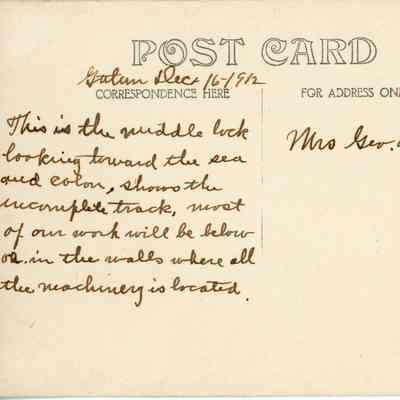 POST CARD
Gatun Dec 16-1912
CORRESPONDENCE HERE
FOR ADDRESS ONL
This is the middle lock
looking toward the sea
and colon, shows the
incomplete track, most
of our work will be below
or in the walls where all
the machinery is located.
Mrs Geo.